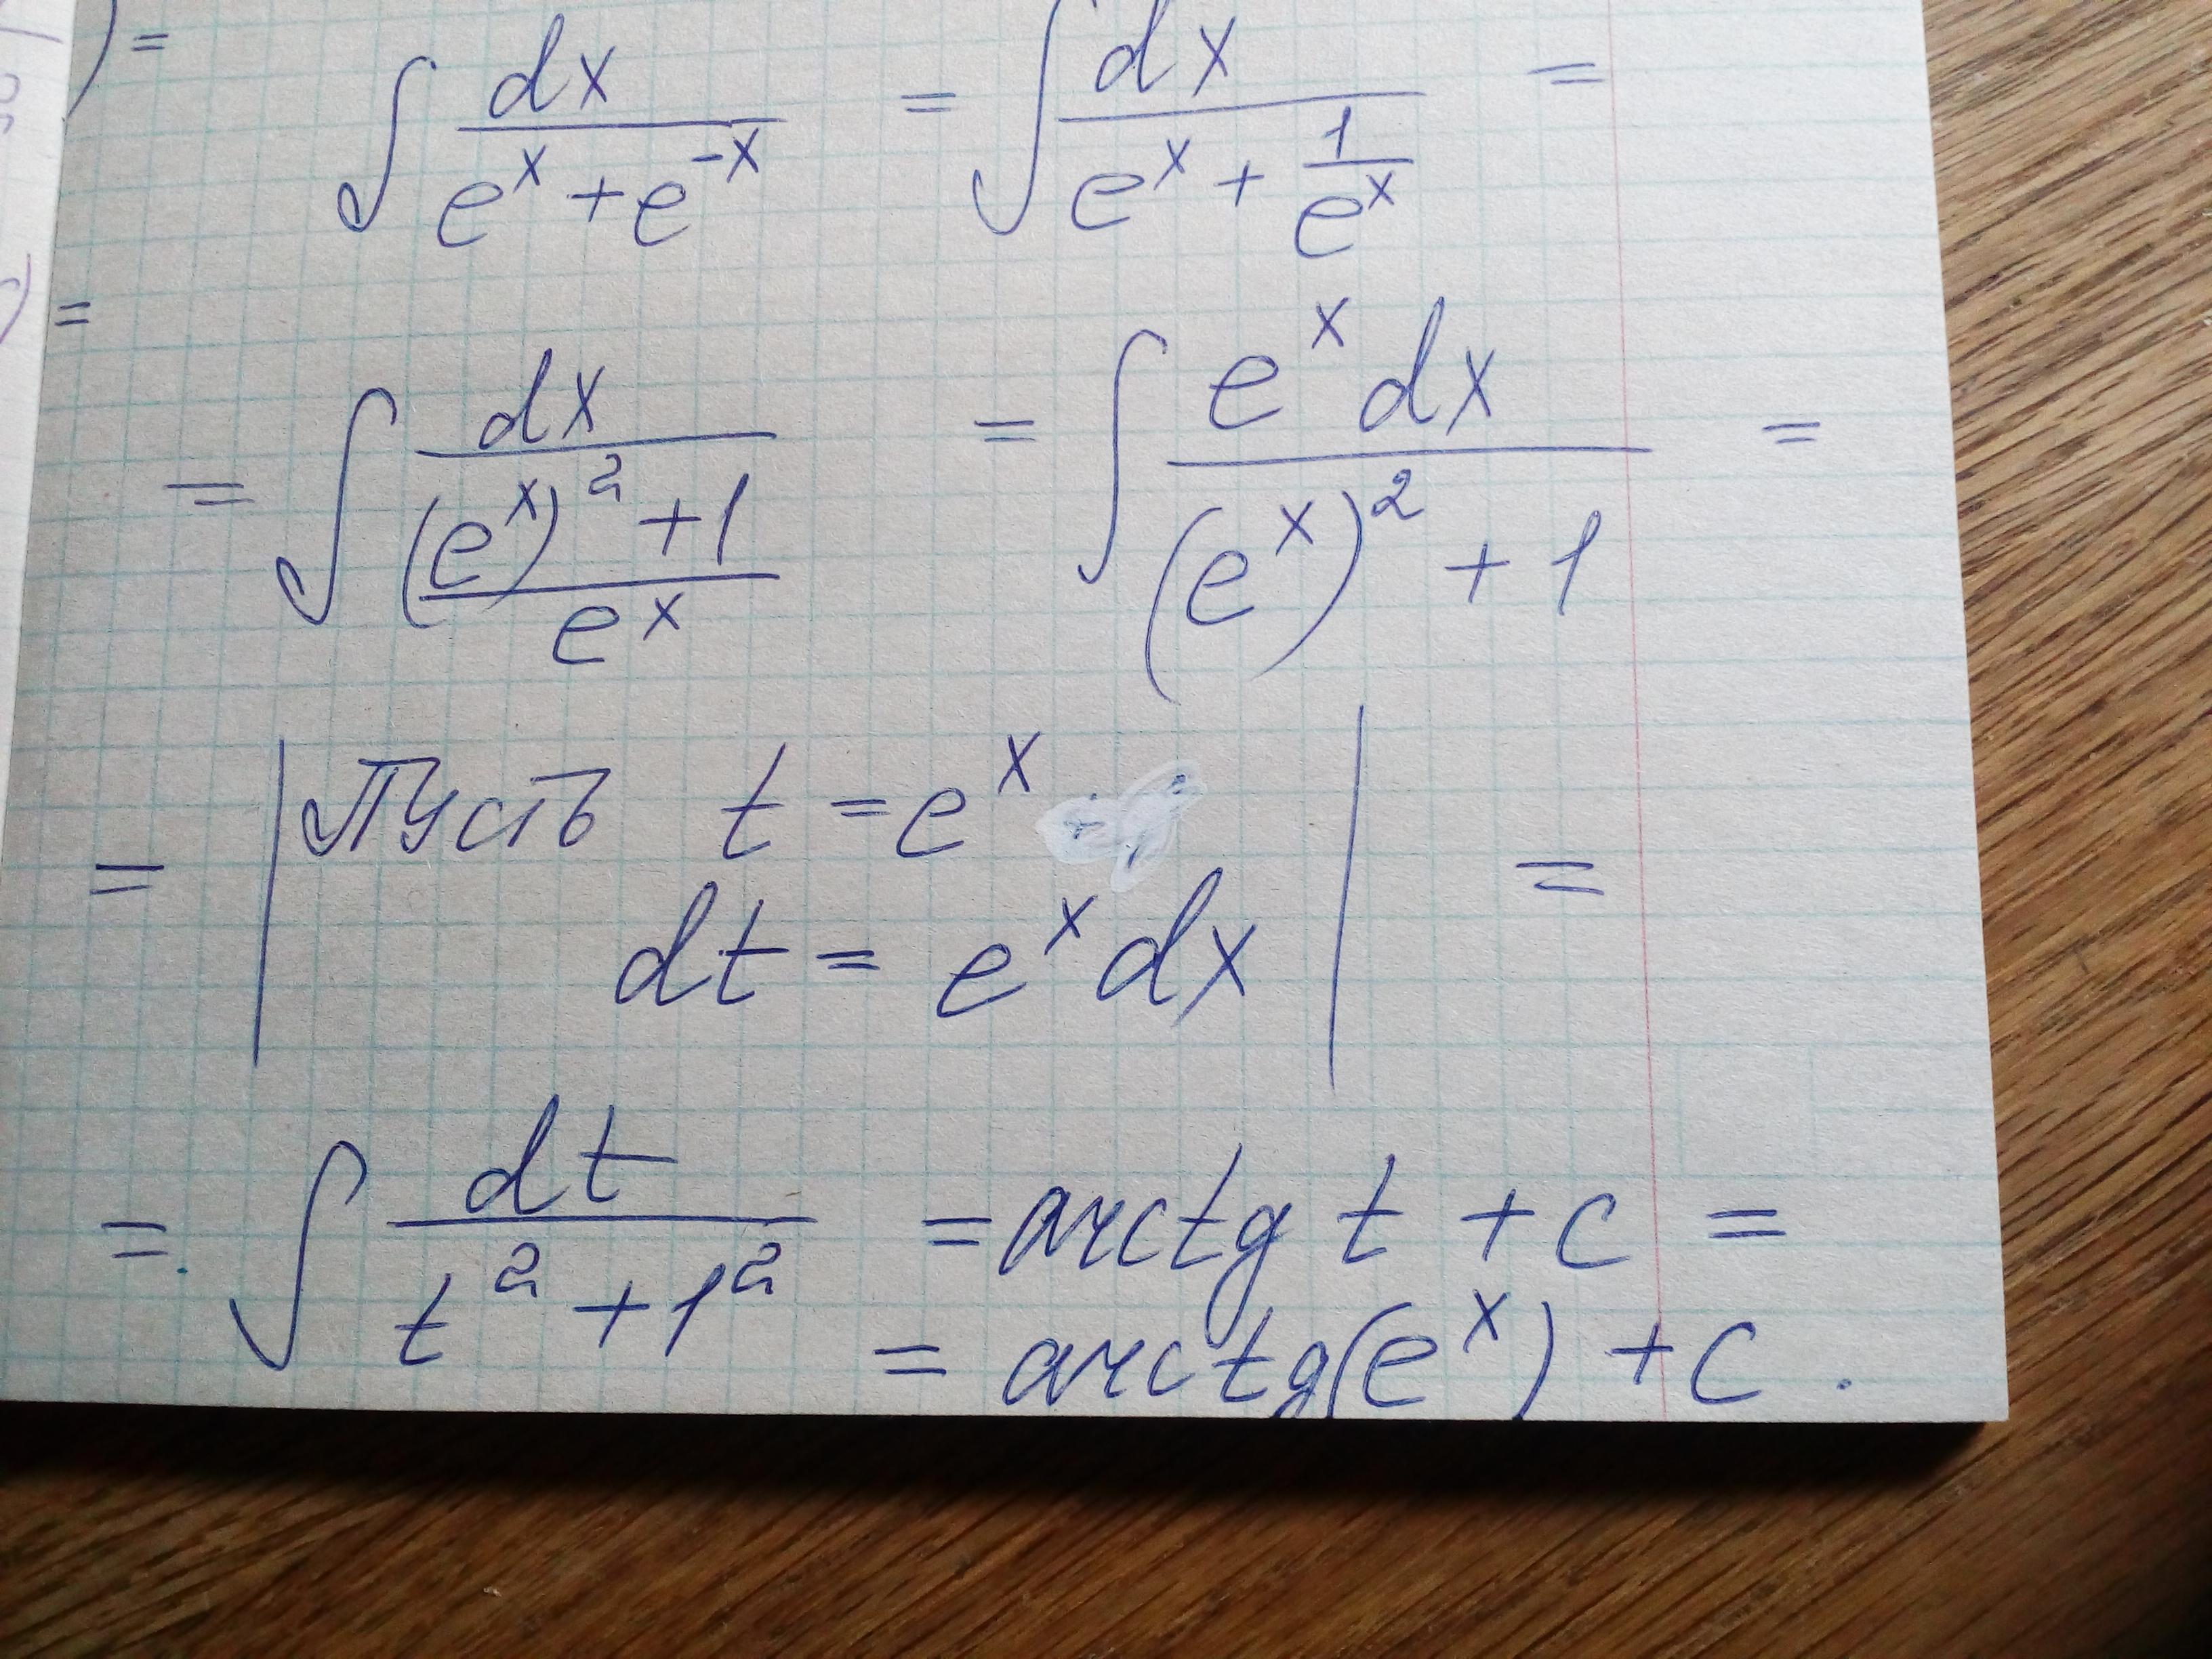 ∫ dx/(e^x + e^-x) = ∫ dx/(e^x + 1/e^x) =
= ∫ dx/(((e^x)^2 + 1)/e^x) = ∫ e^x dx/((e^x)^2 + 1) =
= | Пусть t = e^x
dt = e^x dx | =
= ∫ dt/(t^2 + 1^2) = arctg t + c =
= arctg(e^x) + c.